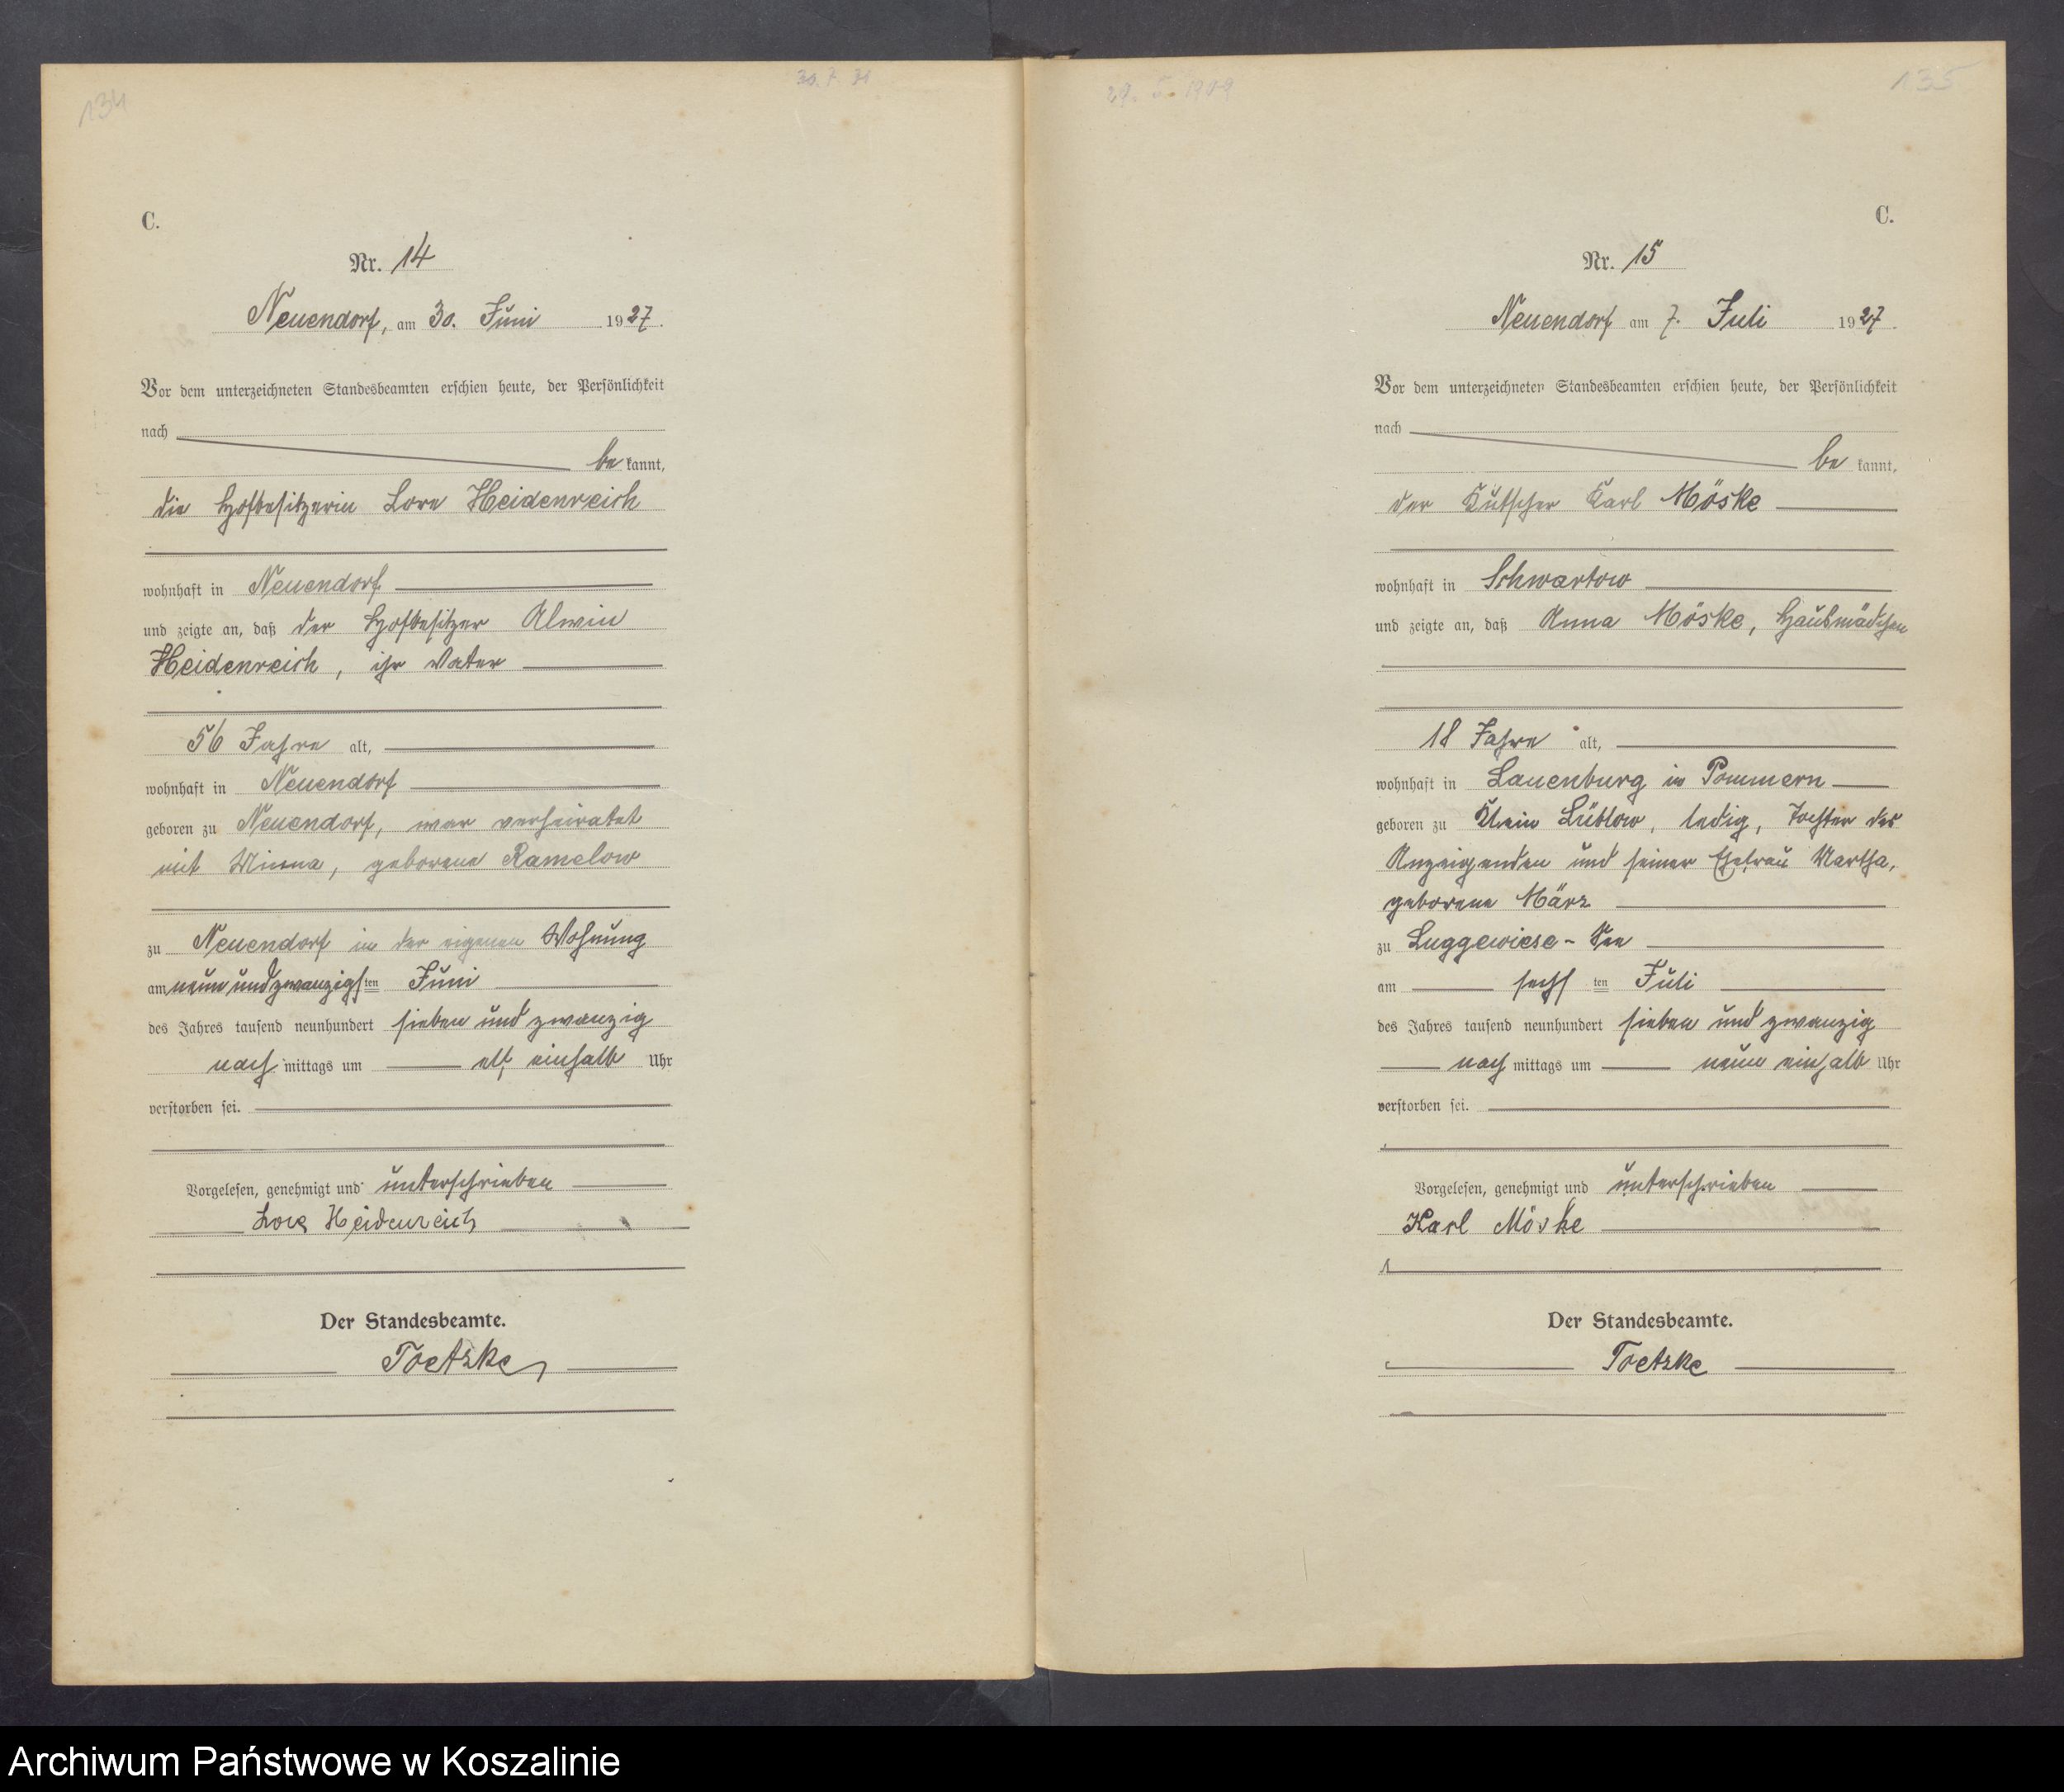 134
30. 7. 31
C.
Nr. 14
Neuendorf, am 30. Juni 1927.
Vor dem unterzeichneten Standesbeamten erschien heute, der Persönlichkeit
nach
be kannt,
die Hofbesitzerin Lore Heidenreich
wohnhaft in Neuendorf
und zeigte an, daß der Hofbesitzer Alwin
Heidenreich, ihr Vater
56 Jahre alt,
wohnhaft in Neuendorf
geboren zu Neuendorf, war verheiratet
mit Minna, geborene Ramelow
zu Neuendorf in der eigenen Wohnung
am neun und zwanzigsten Juni
des Jahres tausend neunhundert sieben und zwanzig
nach mittags um elf einhalb Uhr
verstorben sei.
Vorgelesen, genehmigt und unterschrieben
Lore Heidenreich
Der Standesbeamte.
Toetzke
135
29. 5. 1909
C.
Nr. 15
Neuendorf am 7. Juli 1927.
Vor dem unterzeichneten Standesbeamten erschien heute, der Persönlichkeit
nach
be kannt,
der Kutscher Karl Möske
wohnhaft in Schwartow
und zeigte an, daß Anna Möske, Hausmädchen
18 Jahre alt,
wohnhaft in Lauenburg in Pommern
geboren zu Klein Lüblow, ledig, Tochter des
Anzeigenden und seiner Ehefrau Martha,
geborene März
zu Luggewiese-See
am sechsten Juli
des Jahres tausend neunhundert sieben und zwanzig
nach mittags um neun einhalb Uhr
verstorben sei.
Vorgelesen, genehmigt und unterschrieben
Karl Möske
Der Standesbeamte.
Toetzke
Archiwum Państwowe w Koszalinie